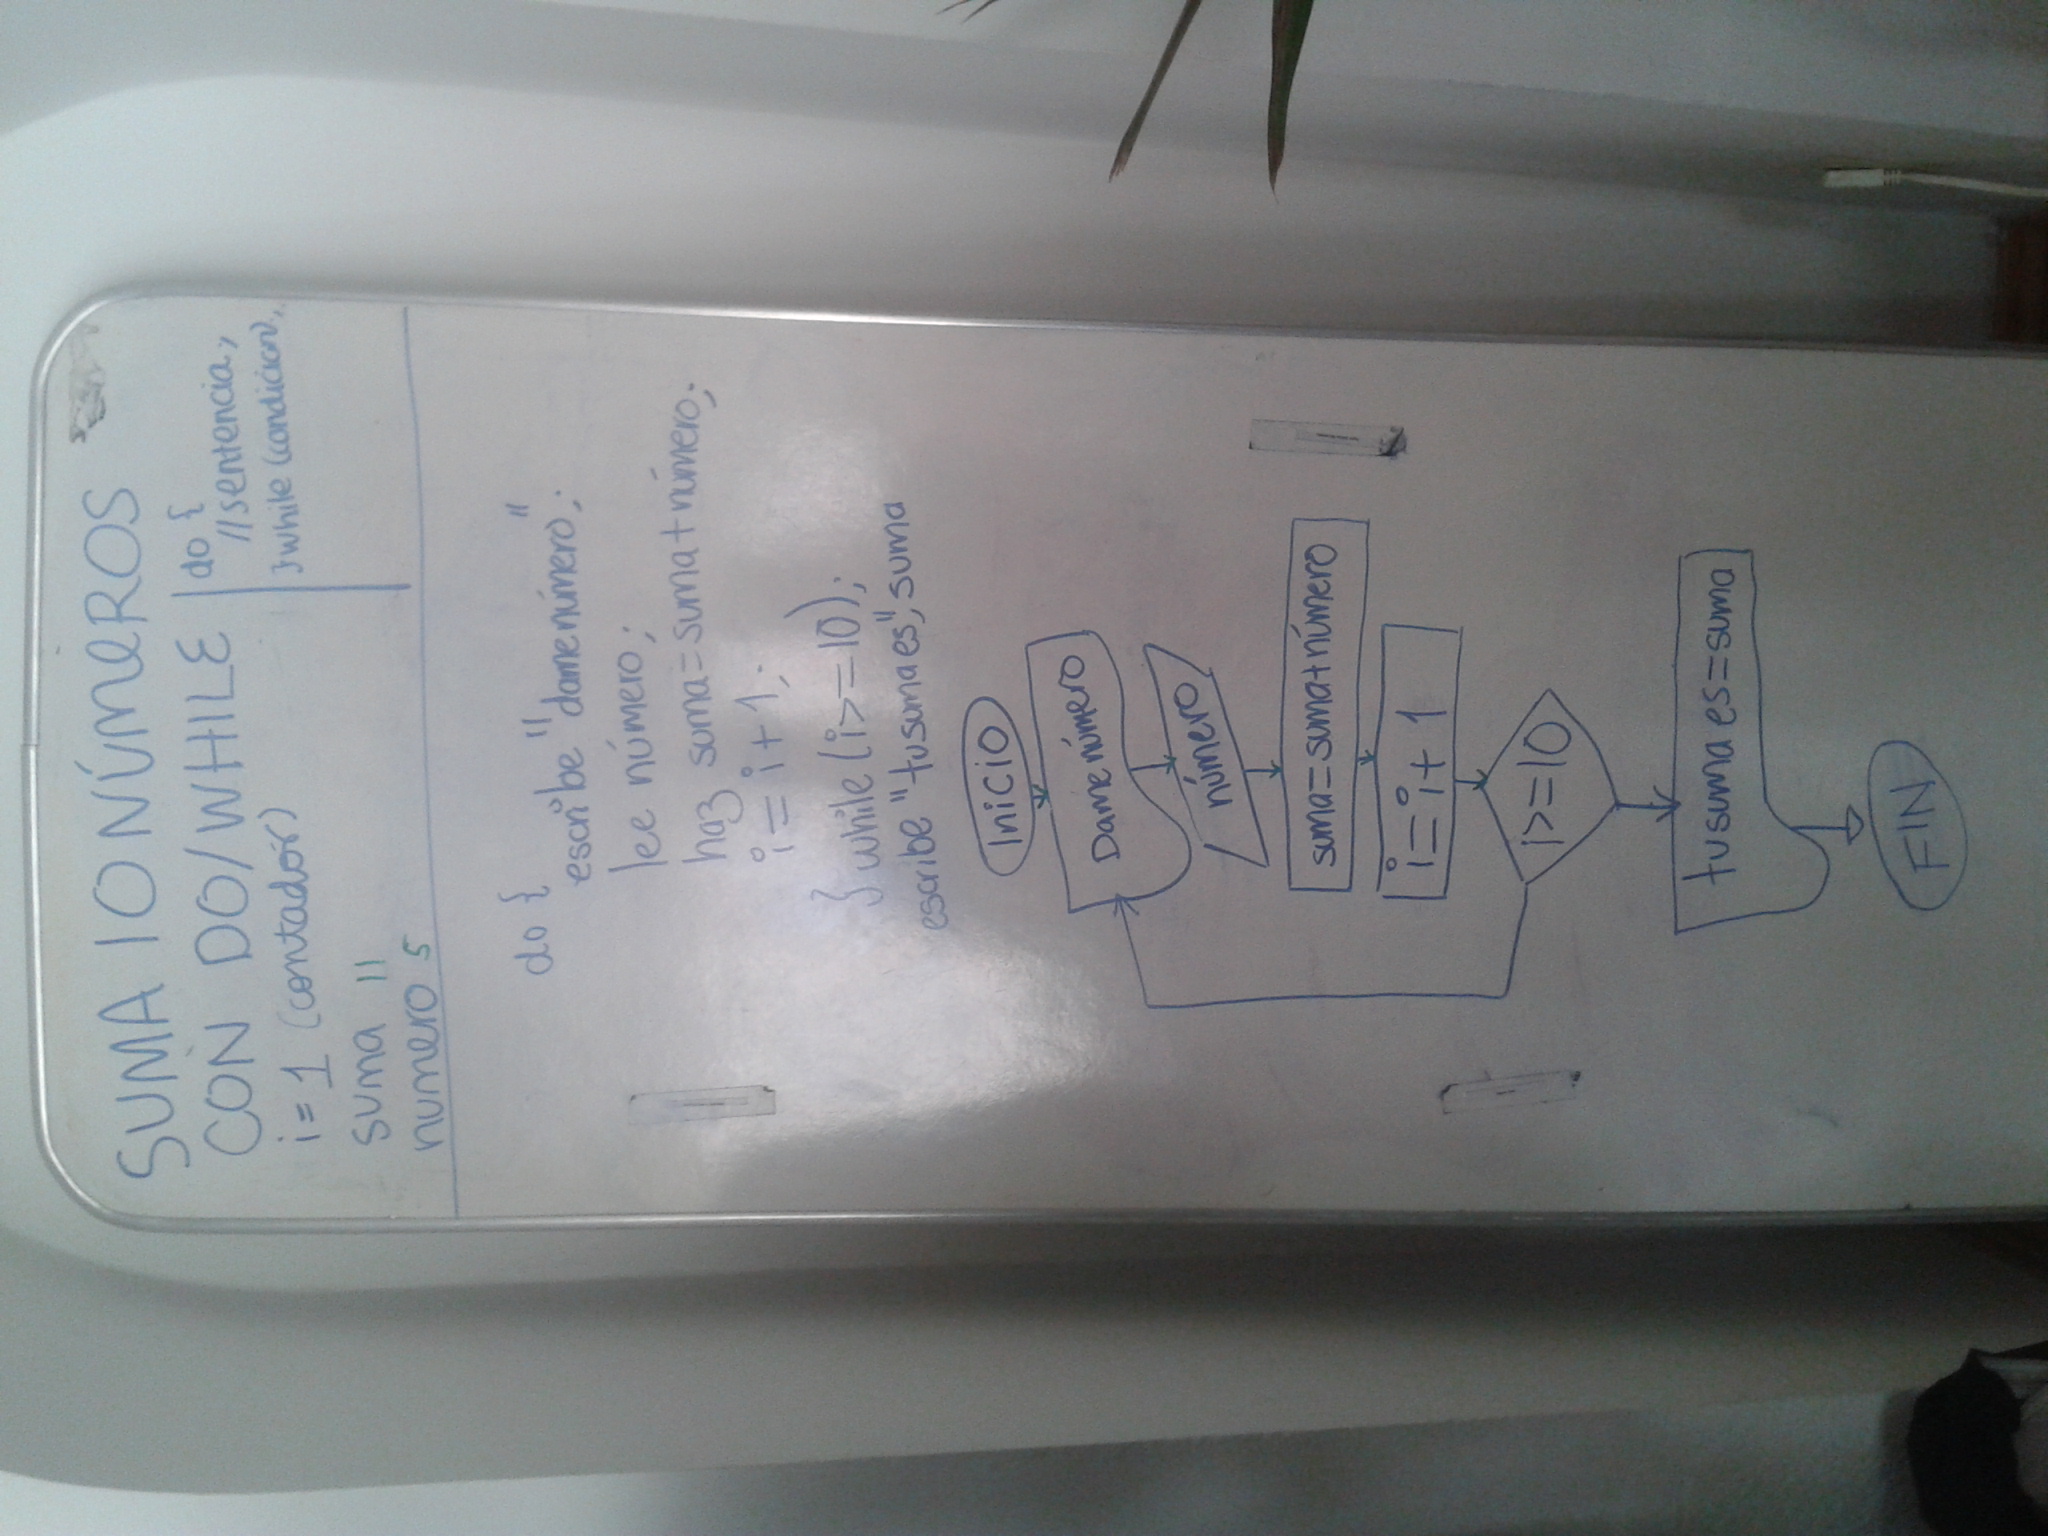 SUMA 10 NÚMEROS
CON DO/WHILE
i=1 (contador)
suma 11
numero 5
do {
//sentencia;
}while (condicion);
do {
escribe "damenúmero";
lee número;
haz suma=suma+número;
i=i+1;
} while (i>=10);
escribe "tusumaes", suma
Inicio
Dame número
número
suma=suma+número
i=i+1
i>=10
tusuma es=suma
FIN